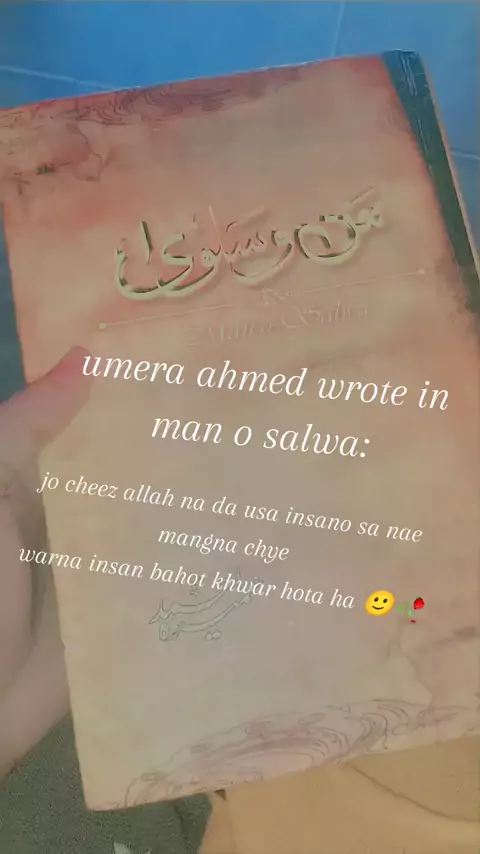 من و سلویٰ
Man-o-Salwa
umera ahmed wrote in
man o salwa:
jo cheez allah na da usa insano sa nae
mangna chye
warna insan bahot khwar hota ha 🙂🥀